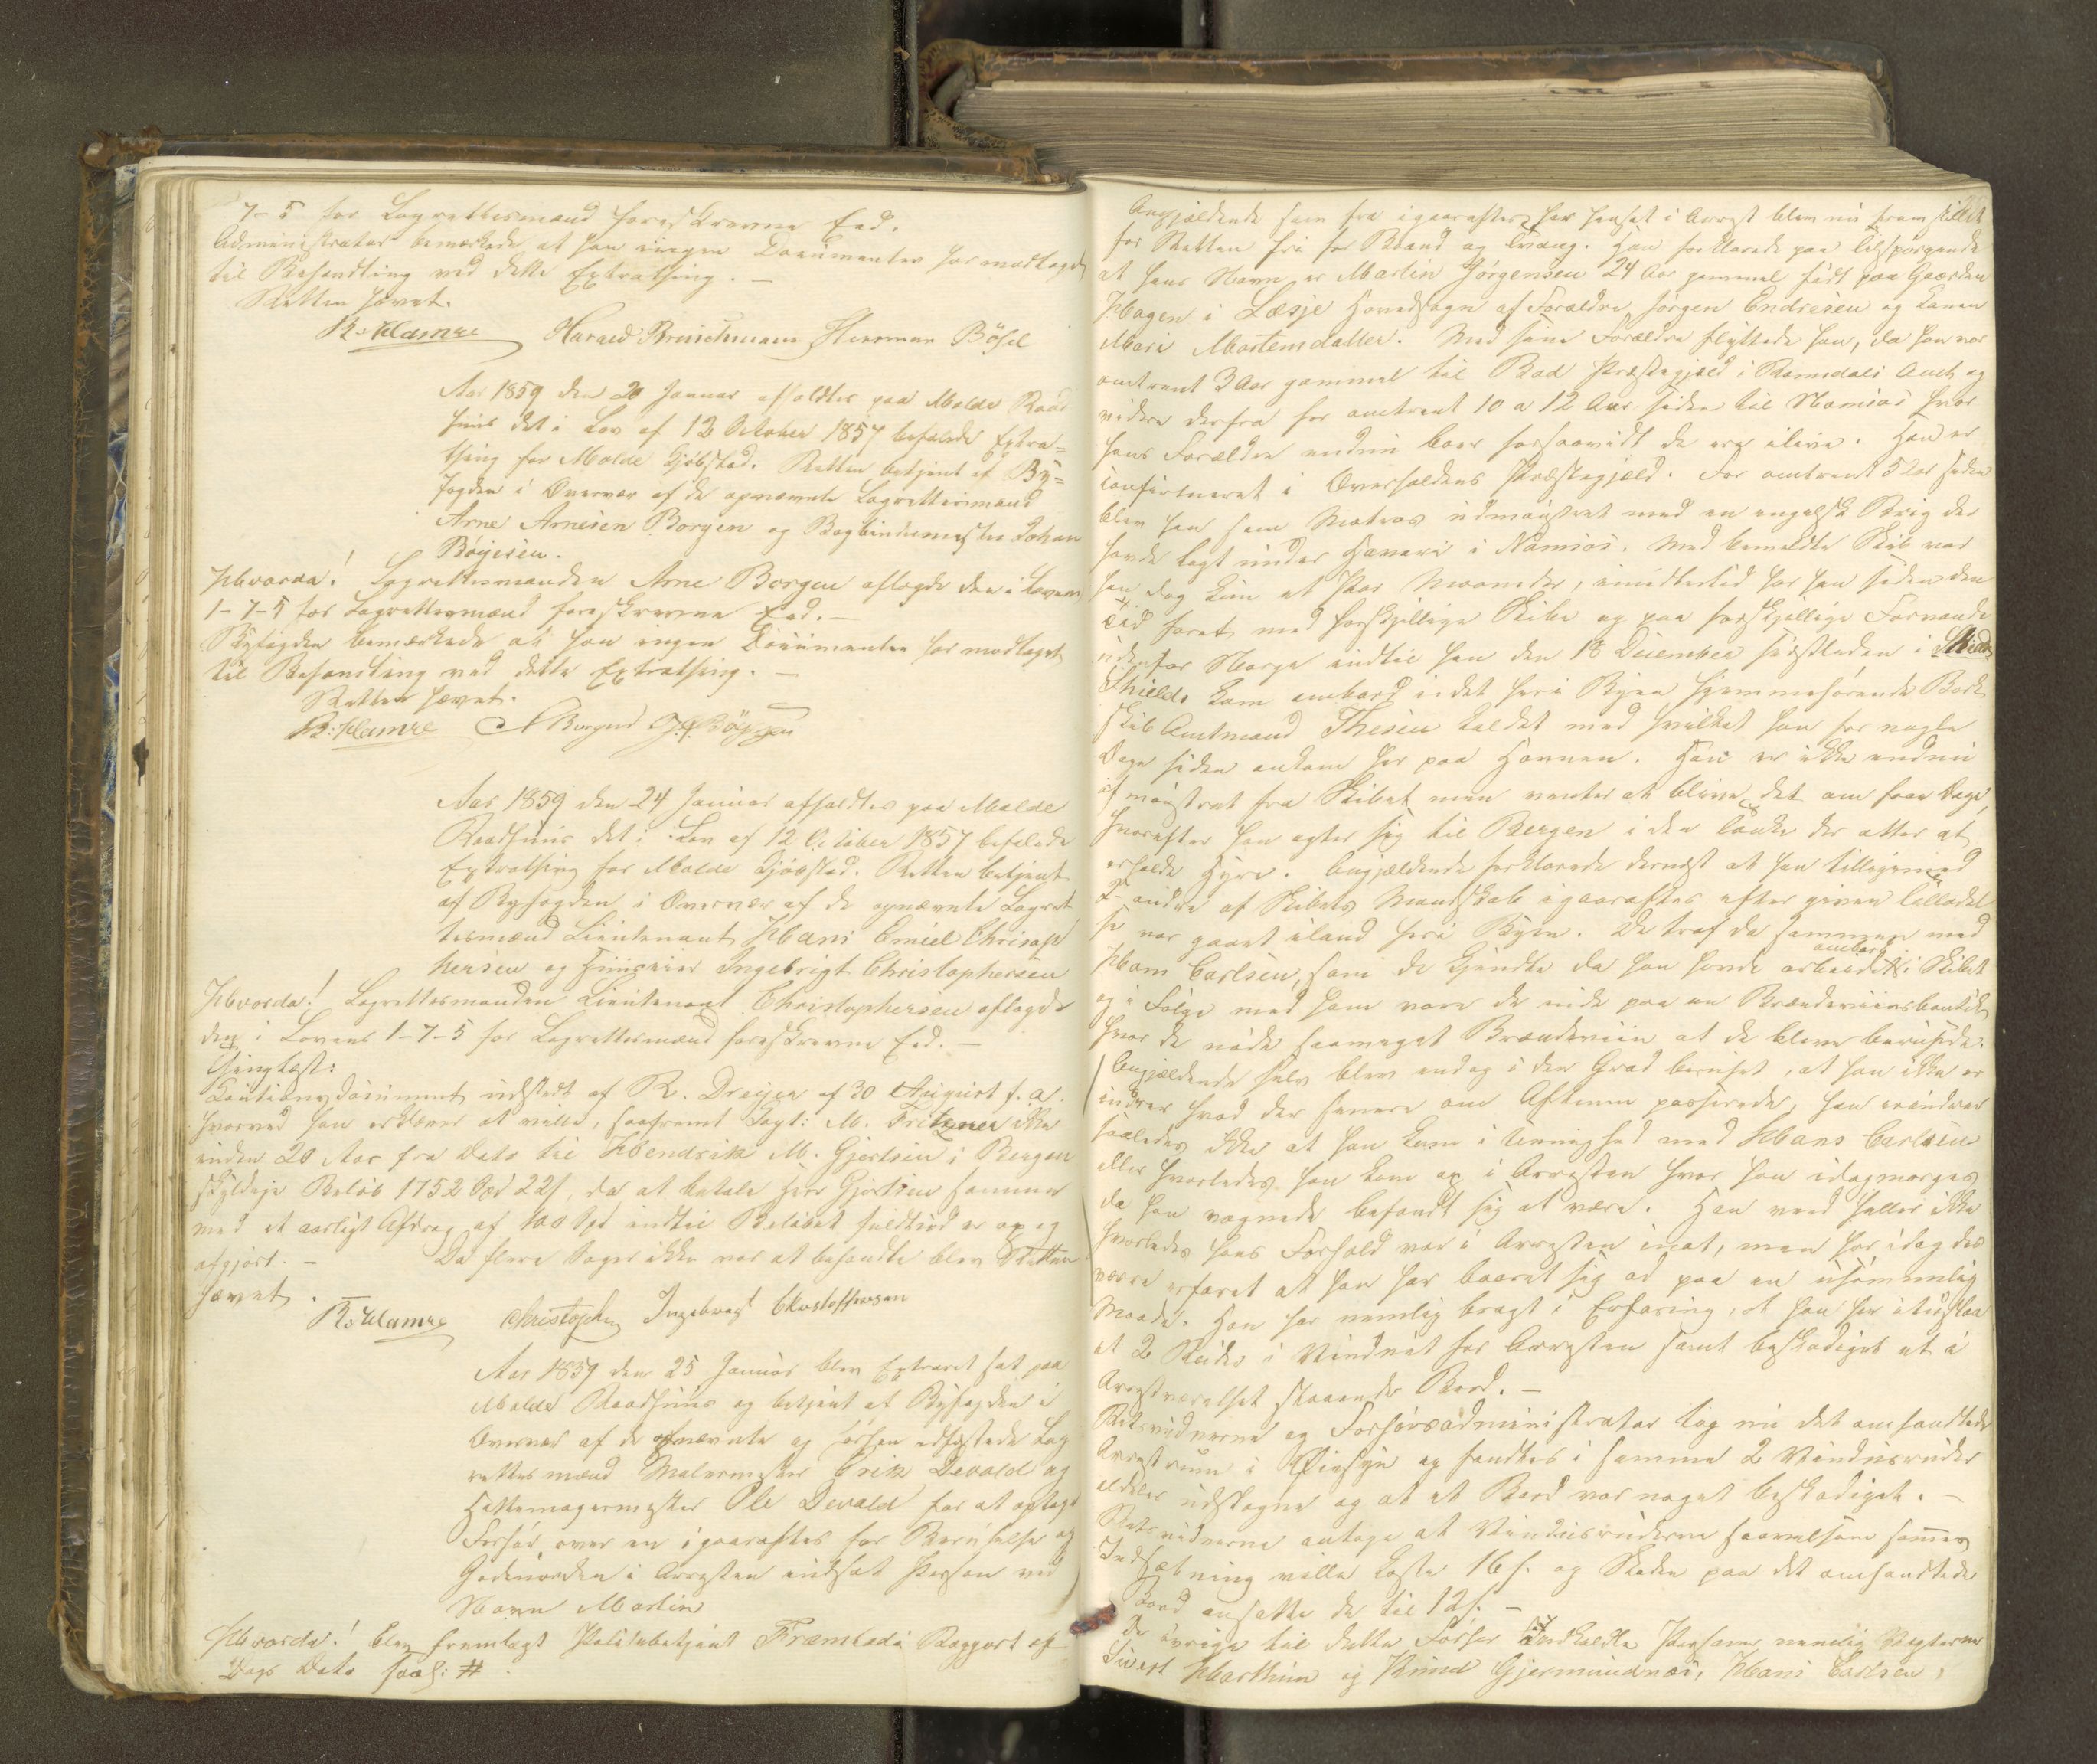 7-5 for Lagrettesmænd foreskrevne Eed.
Administrator bemærkede at han ingen Documenter har modtaget
til Behandling ved dette Extrathing. —
Retten hævet.
R: Hamre Harald Bruschmann Herman Böhl
Aar 1859 den 20 Januar afholdtes paa Molde Raad
huus det i Lov af 12 October 1857 befalede Extra=
thing for Molde Kjöbsted. Retten betjent af By=
fogden i Overvær af de opnævnte Lagrettesmænd
Arne Arnesen Borgen og Bogbindermester Johan
Böyesen.
Hvorda! Lagrettesmanden Arne Borgen aflagde den i Lovens
1-7-5 for Lagrettesmænd foreskrevne Eed. —
Byfogden bemærkede at han ingen Documenter har modtaget
til Behandling ved dette Extrathing. —
Retten hævet.
R: Hamre A Borgen J. Böyesen
Aar 1859 den 24 Januar afholdtes paa Molde
Raadhuus det i Lov af 12 October 1857 befalede
Extrathing for Molde Kjöbsted. Retten betjent
af Byfogden i Overvær af de opnævnte Lagret
tesmænd Lieutenant Hans Emiel Christop
hersen og Ingebrigt Christophersen
Hvorda! Lagrettesmanden Lieutenant Christophersen aflagde
den i Lovens 1-7-5 for Lagrettesmænd foreskrevne Eed. —
Thinglæst:
Cautionsdocument udstedt af R. Dreyer af 30 August f. a.
hvorved han erklærer at ville, saafremt M. Fritzner ikke
inden 20 Aar fra Dato til Hendrik M. Gjertsen i Bergen
skyldige Beløb 1752 Spd 22 s, da at betale Herr Gjertsen samme
med et aarligt Afdrag af 100 Spd indtil Beløbet fuldtud er op og
afgjort. — Da flere Sager ikke var at behandle blev Retten
hævet.
R: Hamre Christophersen Ingebrigt Christoffersen
Aar 1859 den 25 Januar blev Extraret sat paa
Molde Raadhuus og betjent af Byfogden i
Overvær af de opnævnte og forhen edfæstede Lag
rettesmænd Malermester Erik Devold og
Hattemagermester Ole Devald for at optage
Forhør over en igaaraftes for Beruselse og
Gadeuorden i Arresten indsat Person ved
Navn Martin
Hvorda! blev fremlagt Politibetjent Fræmlads Rapport af
Dags Dato saal: #.
Angjældende som fra igaaraftes har hensat i Arrest blev nu fremstillet
for Retten fri for Baand og Tvang. Han forklarede paa Tilspørgende
at hans Navn er Martin Jørgensen 24 Aar gammel født paa Gaarden
Hagen i Læsje Hovedsogn af Forældre Jørgen Endresen og Konen
Mari Mortensdatter. Med sine Forældre flyttede han, da han var
omtrent 3 Aar gammel til Bod Præstegjæld i Romsdals Amt og
videre derfra for omtrent 10 a 12 Aar siden til Namsos hvor
hans Forældre endnu boer forsaavidt de ere ilive. Han er
confirmeret i Overhaldens Præstegjæld. For omtrent 5 Aar siden
blev han som Matros udmønstret med en engelsk Brig der
havde lagt under Havari i Namsos. Med bemeldte Skib var
han dog kun et Par Maaneder, imidlertid har han siden den
Tid faret med forskjellige Skibe og paa forskjellige Farvande
udenfor Norge indtil han den 18 December sidstleden i
Shields kom ombord i det her i Byen hjemmehørende Bark
skib Amtmand Thesen kaldet med hvilket han for nogle
Dage siden ankom her paa Havnen. Han er ikke endnu
afmønstret fra Skibet men venter at blive det om faae Dage,
hvorefter han agter sig til Bergen i den Tanke der atter at
erholde Hyre. Angjældende forklarede dernæst at han tilligemed
2 andre af Skibets Mandskab igaaraftes efter given Tilladel
se var gaaet iland her i Byen. De traf da sammen med
Hans Carlsen, som de kjendte da han havde arbeidet ombord i Skibet
og i Følge med ham vare de inde paa en Brændeviinsboutik
hvor de nøde saameget Brændeviin at de bleve berusede.
Angjældende selv blev endog i den Grad beruset, at han ikke er
indrer hvad der senere om Aftenen passerede, han erindrer
saaledes ikke at han kom i Uenighed med Hans Carlsen
eller hvorledes han kom op i Arresten hvor han idagmorges
da han vaagnede befandt sig at være. Han veed heller ikke
hvorledes hans Forhold var i Arresten inat, men har idag des
værre erfaret at han har baaret sig ad paa en usømmelig
Maade. Han har nemlig bragt i Erfaring, at han har ituslaaet
et 2 Ruder i Vinduet for Arresten samt beskadiget et i
Arrestværelset staaende Bord. —
Retsvidnerne og Forhørsadministrator tog nu det omhandlede
Arrestrum i Øiesyn og fandtes i samme 2 Vinduesruder
aldeles udslagne og at et Bord var noget beskadiget. —
Retsvidnerne antoge at Vinduesruderne saavelsom sammes
Indsætning ville koste 16 s. og Skaden paa det omhandlede
Bord ansatte de til 12 s. —
De øvrige til dette Forhør indkaldte Personer nemlig Vægterne
Sivert Harthun og Knud Gjermundnæs, Hans Carlsen,